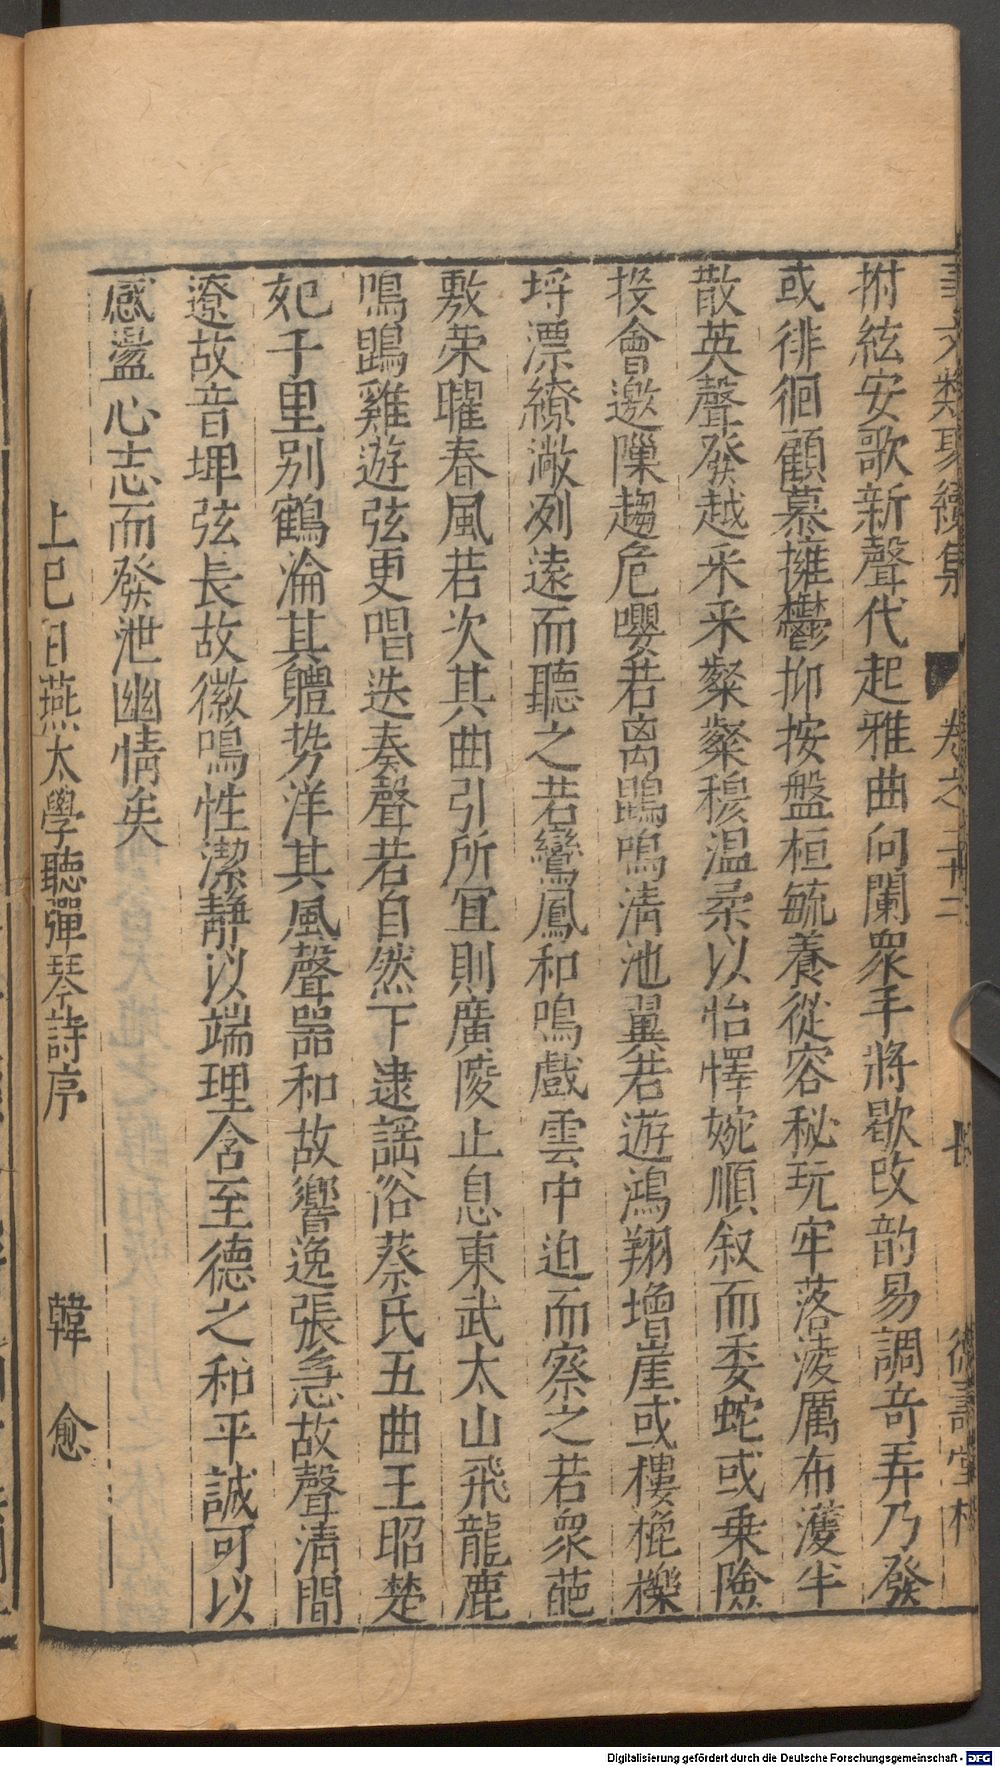 事文類聚續集 卷之二十二 德壽堂梓
拊絃安歌新聲代起雅曲向闌衆手將歇改韵易調奇弄乃發
或徘徊顧慕擁鬱抑按盤桓毓養從容秘玩牢落凌厲布濩半
散英聲發越釆釆粲粲穆温柔以怡懌婉順叙而委蛇或乗險
投會邀隟趨危嚶若离鵾鳴清池翼若遊鴻翔增崖或摟㧰櫟
埒漂繚潎冽遠而聽之若鸞鳳和鳴戲雲中迫而察之若衆葩
敷荣曜春風若次其曲引所宜則廣陵止息東武太山飛龍鹿
鳴鵾雞遊弦更唱迭奏聲若自然下逮謡俗蔡氏五曲王昭楚
妃千里别鶴淪其體势洋其風聲噐和故響逸張急故聲清間
遼故音埤弦長故徽鳴性潔静以端理含至德之和平誠可以
感盪心志而發泄幽情矣
上巳日燕太學聽彈琴詩序 韓愈
Digitalisierung gefördert durch die Deutsche Forschungsgemeinschaft - DFG